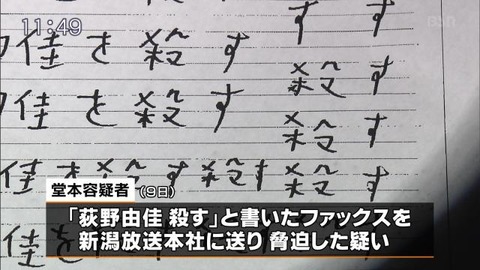 11:49
BSN
佳を殺す す す
佳を殺す 殺す
佳を殺す 殺す
佳を殺す殺す 殺す
堂本容疑者 (9日)
「荻野由佳 殺す」と書いたファックスを
新潟放送本社に送り 脅迫した疑い